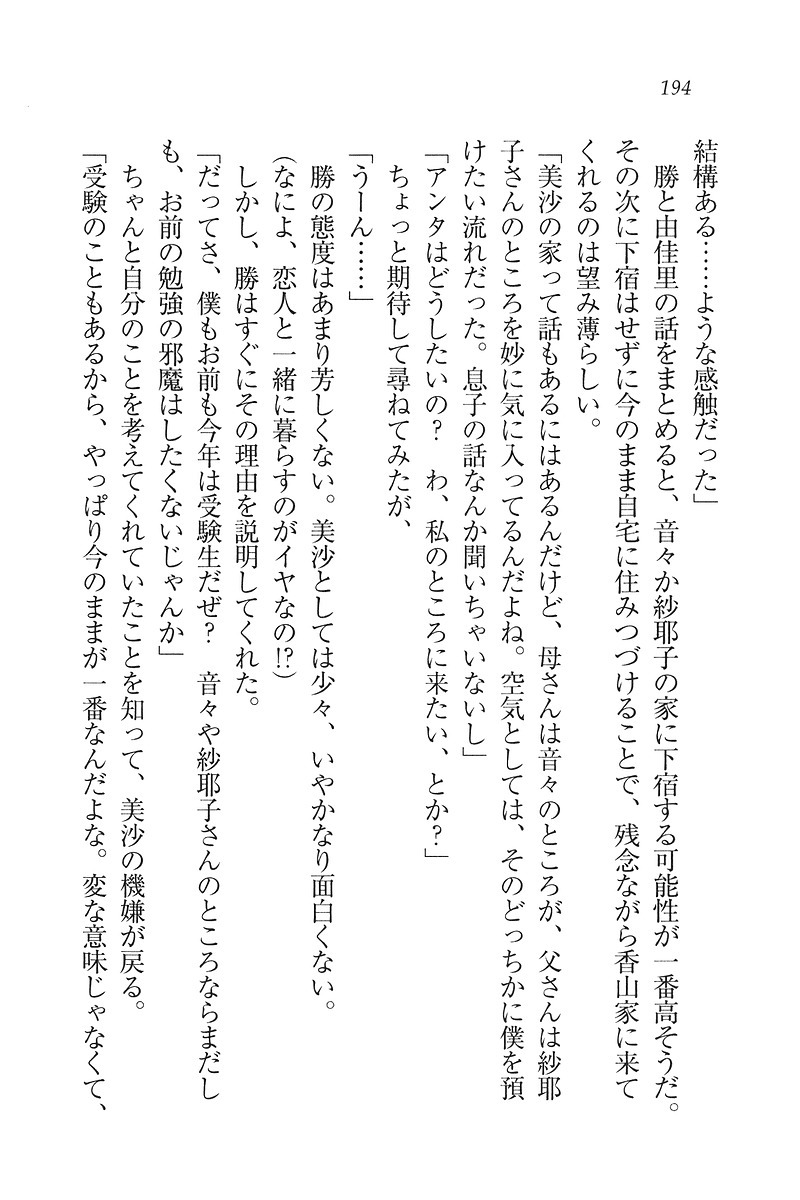 194
結構ある……ような感触だった」
　勝と由佳里の話をまとめると、音々か紗耶子の家に下宿する可能性が一番高そうだ。
その次に下宿はせずに今のまま自宅に住みつづけることで、残念ながら香山家に来て
くれるのは望み薄らしい。
「美沙の家って話もあるにはあるんだけど、母さんは音々のところが、父さんは紗耶
子さんのところを妙に気に入ってるんだよね。空気としては、そのどっちかに僕を預
けたい流れだった。息子の話なんか聞いちゃいないし」
「アンタはどうしたいの？　わ、私のところに来たい、とか？」
　ちょっと期待して尋ねてみたが、
「うーん……」
　勝の態度はあまり芳しくない。美沙としては少々、いやかなり面白くない。
（なによ、恋人と一緒に暮らすのがイヤなの!?）
　しかし、勝はすぐにその理由を説明してくれた。
「だってさ、僕もお前も今年は受験生だぜ？　音々や紗耶子さんのところならまだし
も、お前の勉強の邪魔はしたくないじゃんか」
　ちゃんと自分のことを考えてくれていたことを知って、美沙の機嫌が戻る。
「受験のこともあるから、やっぱり今のままが一番なんだよな。変な意味じゃなくて、